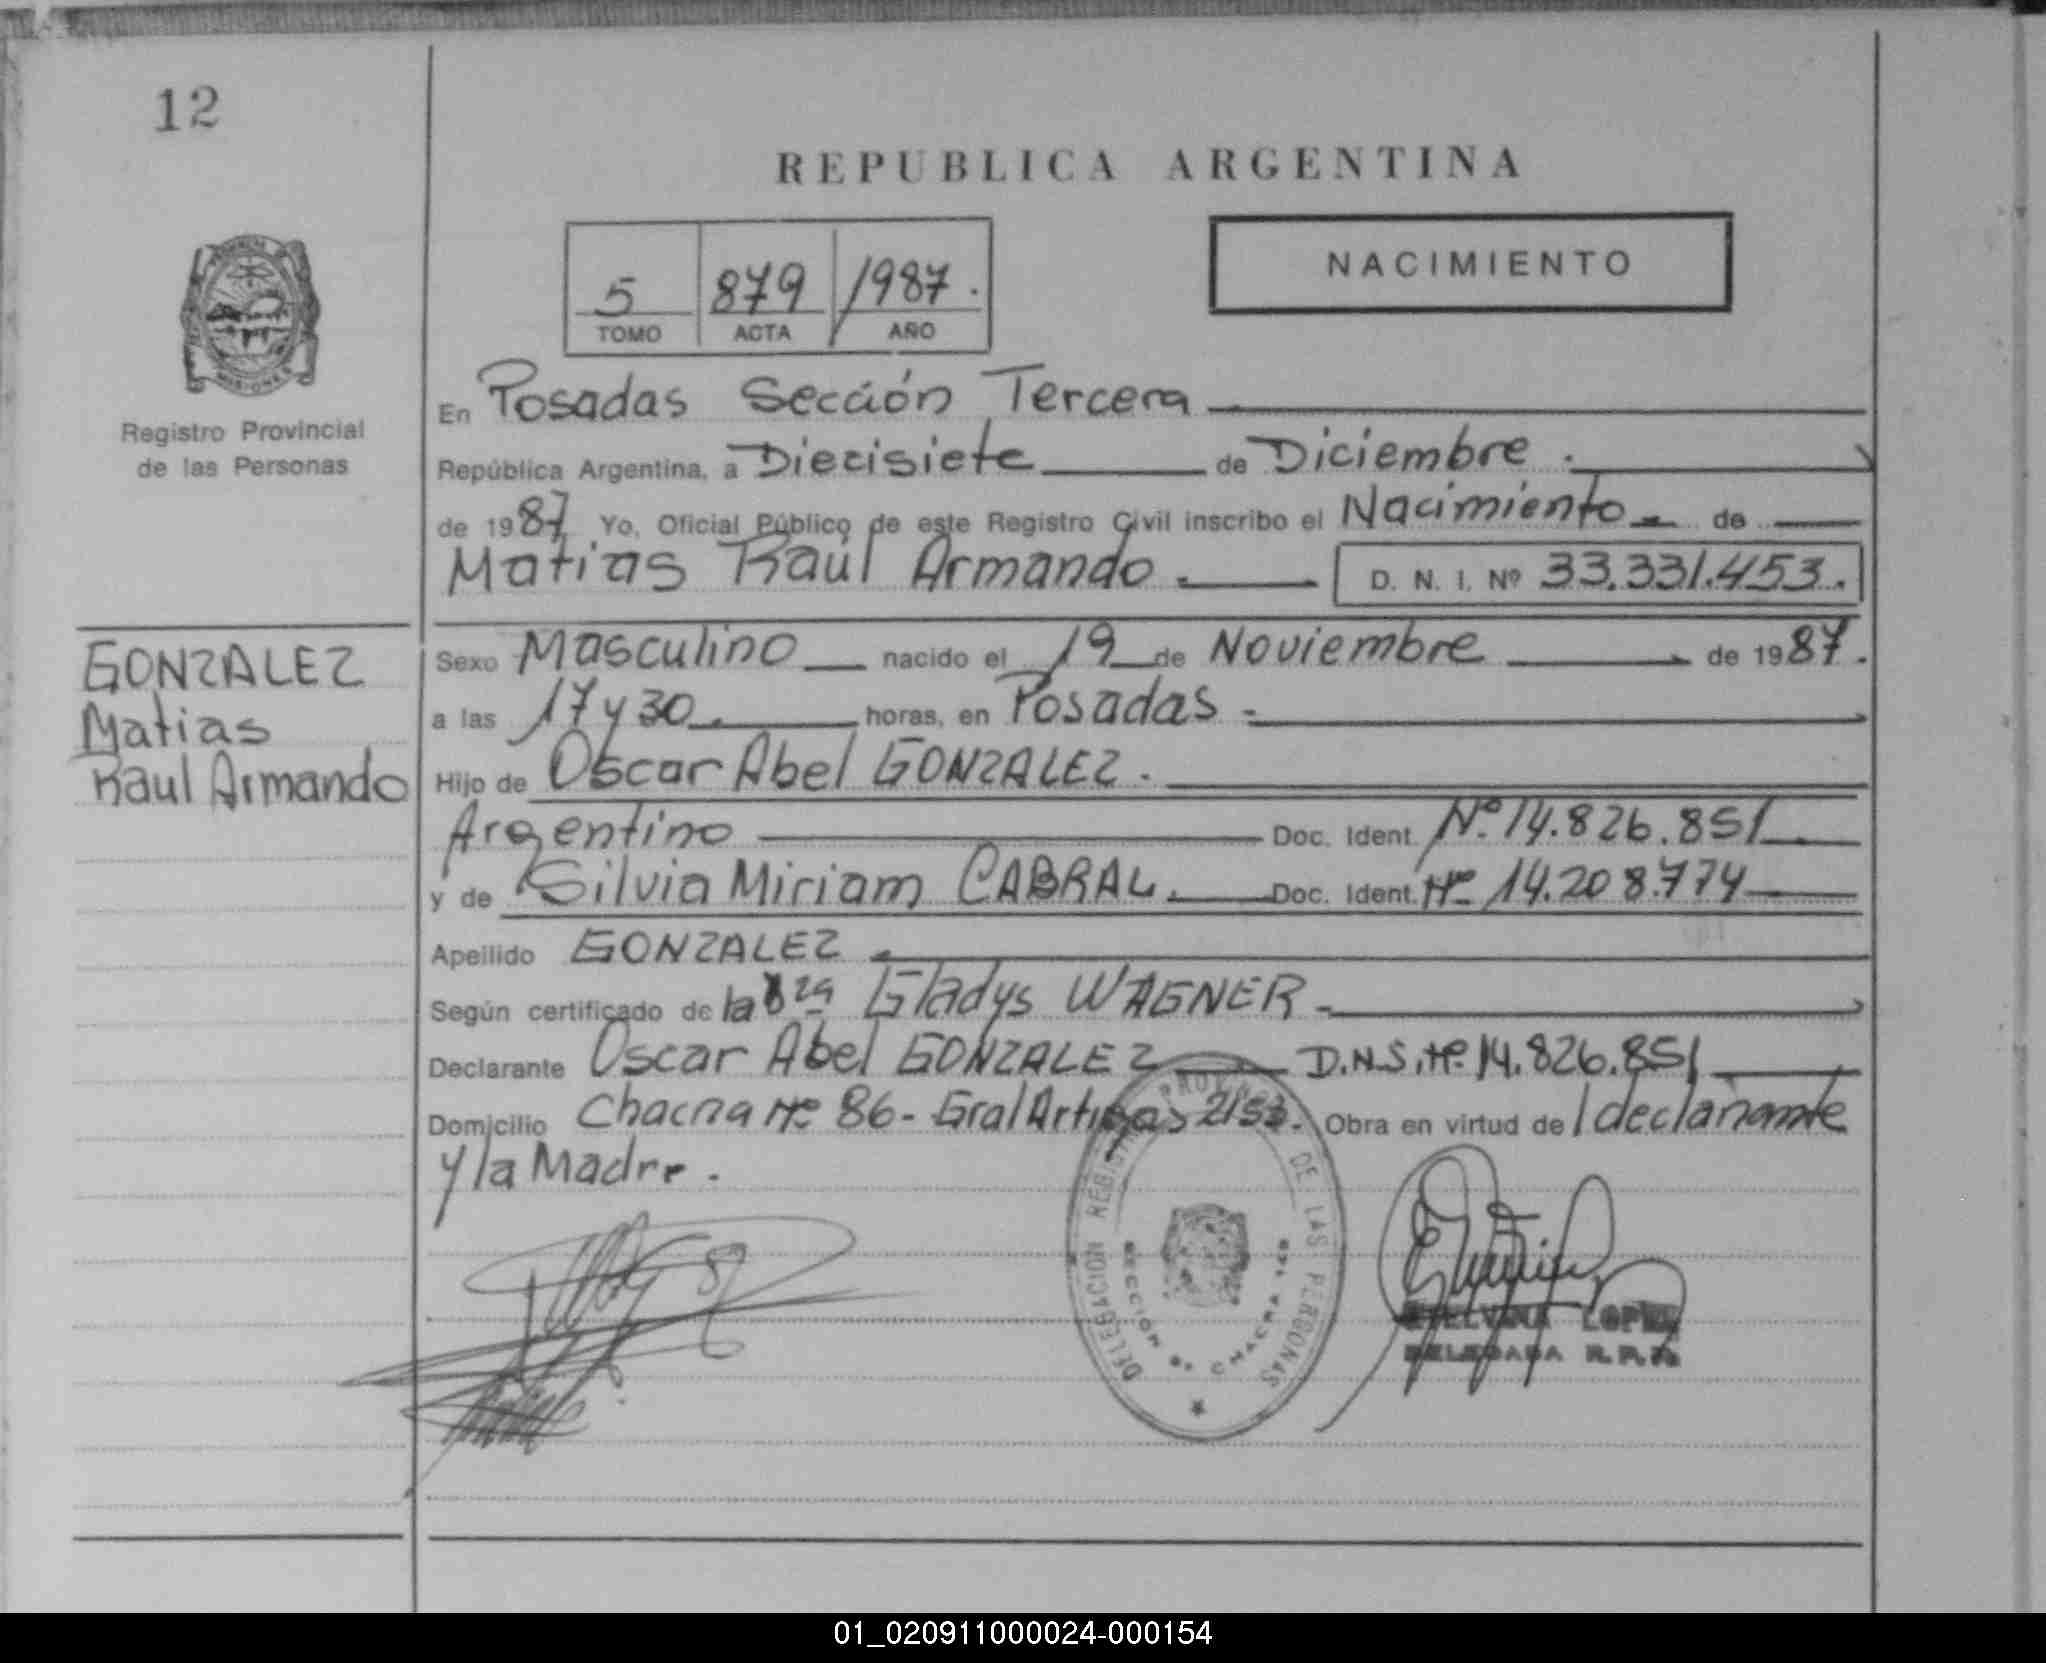 12
REPUBLICA ARGENTINA
NACIMIENTO
5 879 1987.
TOMO ACTA AÑO
MISIONES
Registro Provincial
de las Personas
En Posadas Sección Tercera
República Argentina, a Diecisiete de Diciembre.
de 1987 Yo, Oficial Público de este Registro Civil inscribo el Nacimiento de
Matias Raúl Armando. D. N. I. Nº 33.331.453.
GONZALEZ
Matias
Raul Armando
Sexo Masculino nacido el 19 de Noviembre de 1987.
a las 17 y 30. horas, en Posadas
Hijo de Oscar Abel GONZALEZ.
Argentino Doc. Ident. Nº 14.826.851
y de Silvia Miriam CABRAL. Doc. Ident. Nº 14.208.774
Apellido GONZALEZ
Según certificado de la Gladys WAGNER
Declarante Oscar Abel GONZALEZ D.N.I. Nº 14.826.851
Domicilio Chacra Nº 86 - Gral Artigas 2153. Obra en virtud de l declarante
y la Madre.
DELEGACION REGISTRO PROVINCIAL DE LAS PERSONAS
SECCION 3ª CHACRA
LOPEZ
DELEGADA R.P.P.
01_020911000024-000154